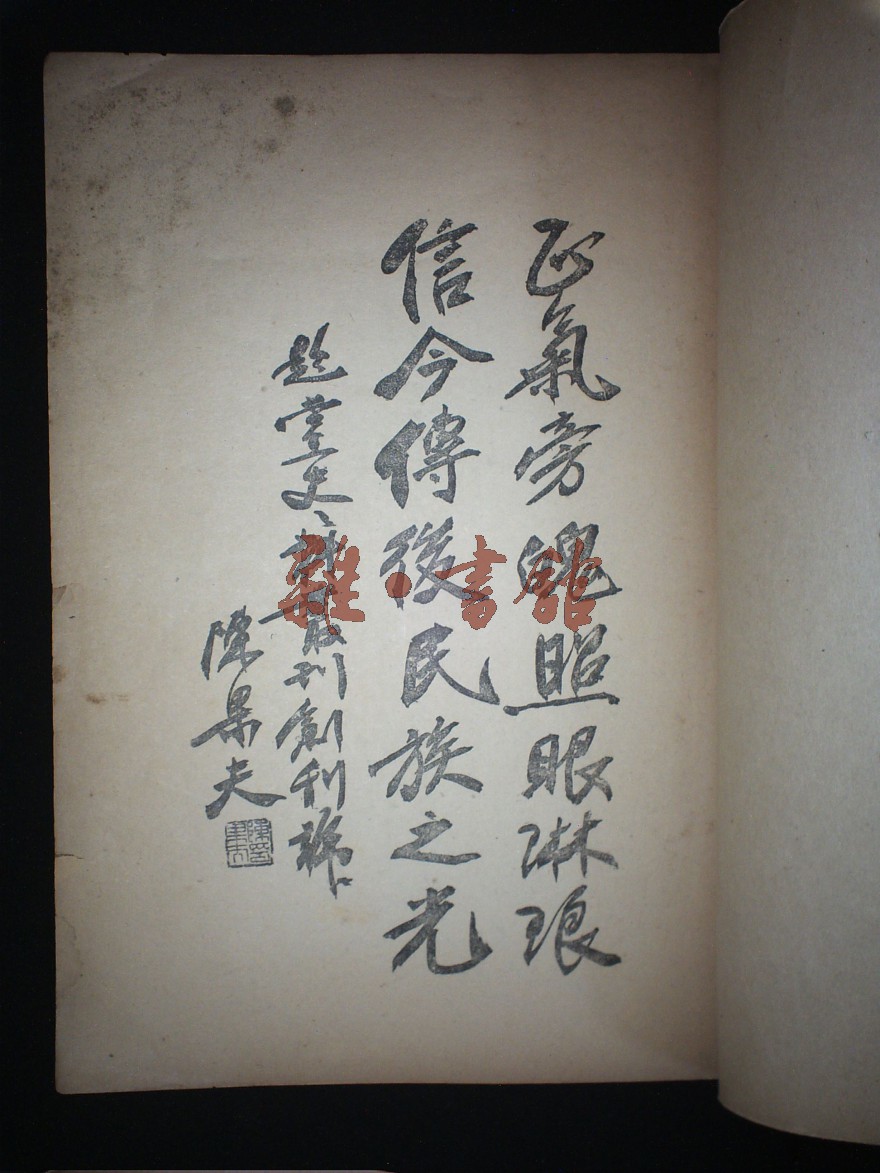 正氣旁魄照眼琳琅
信今傳後民族之光
題黨史史料叢刊創刊號
陳果夫
雜·書館